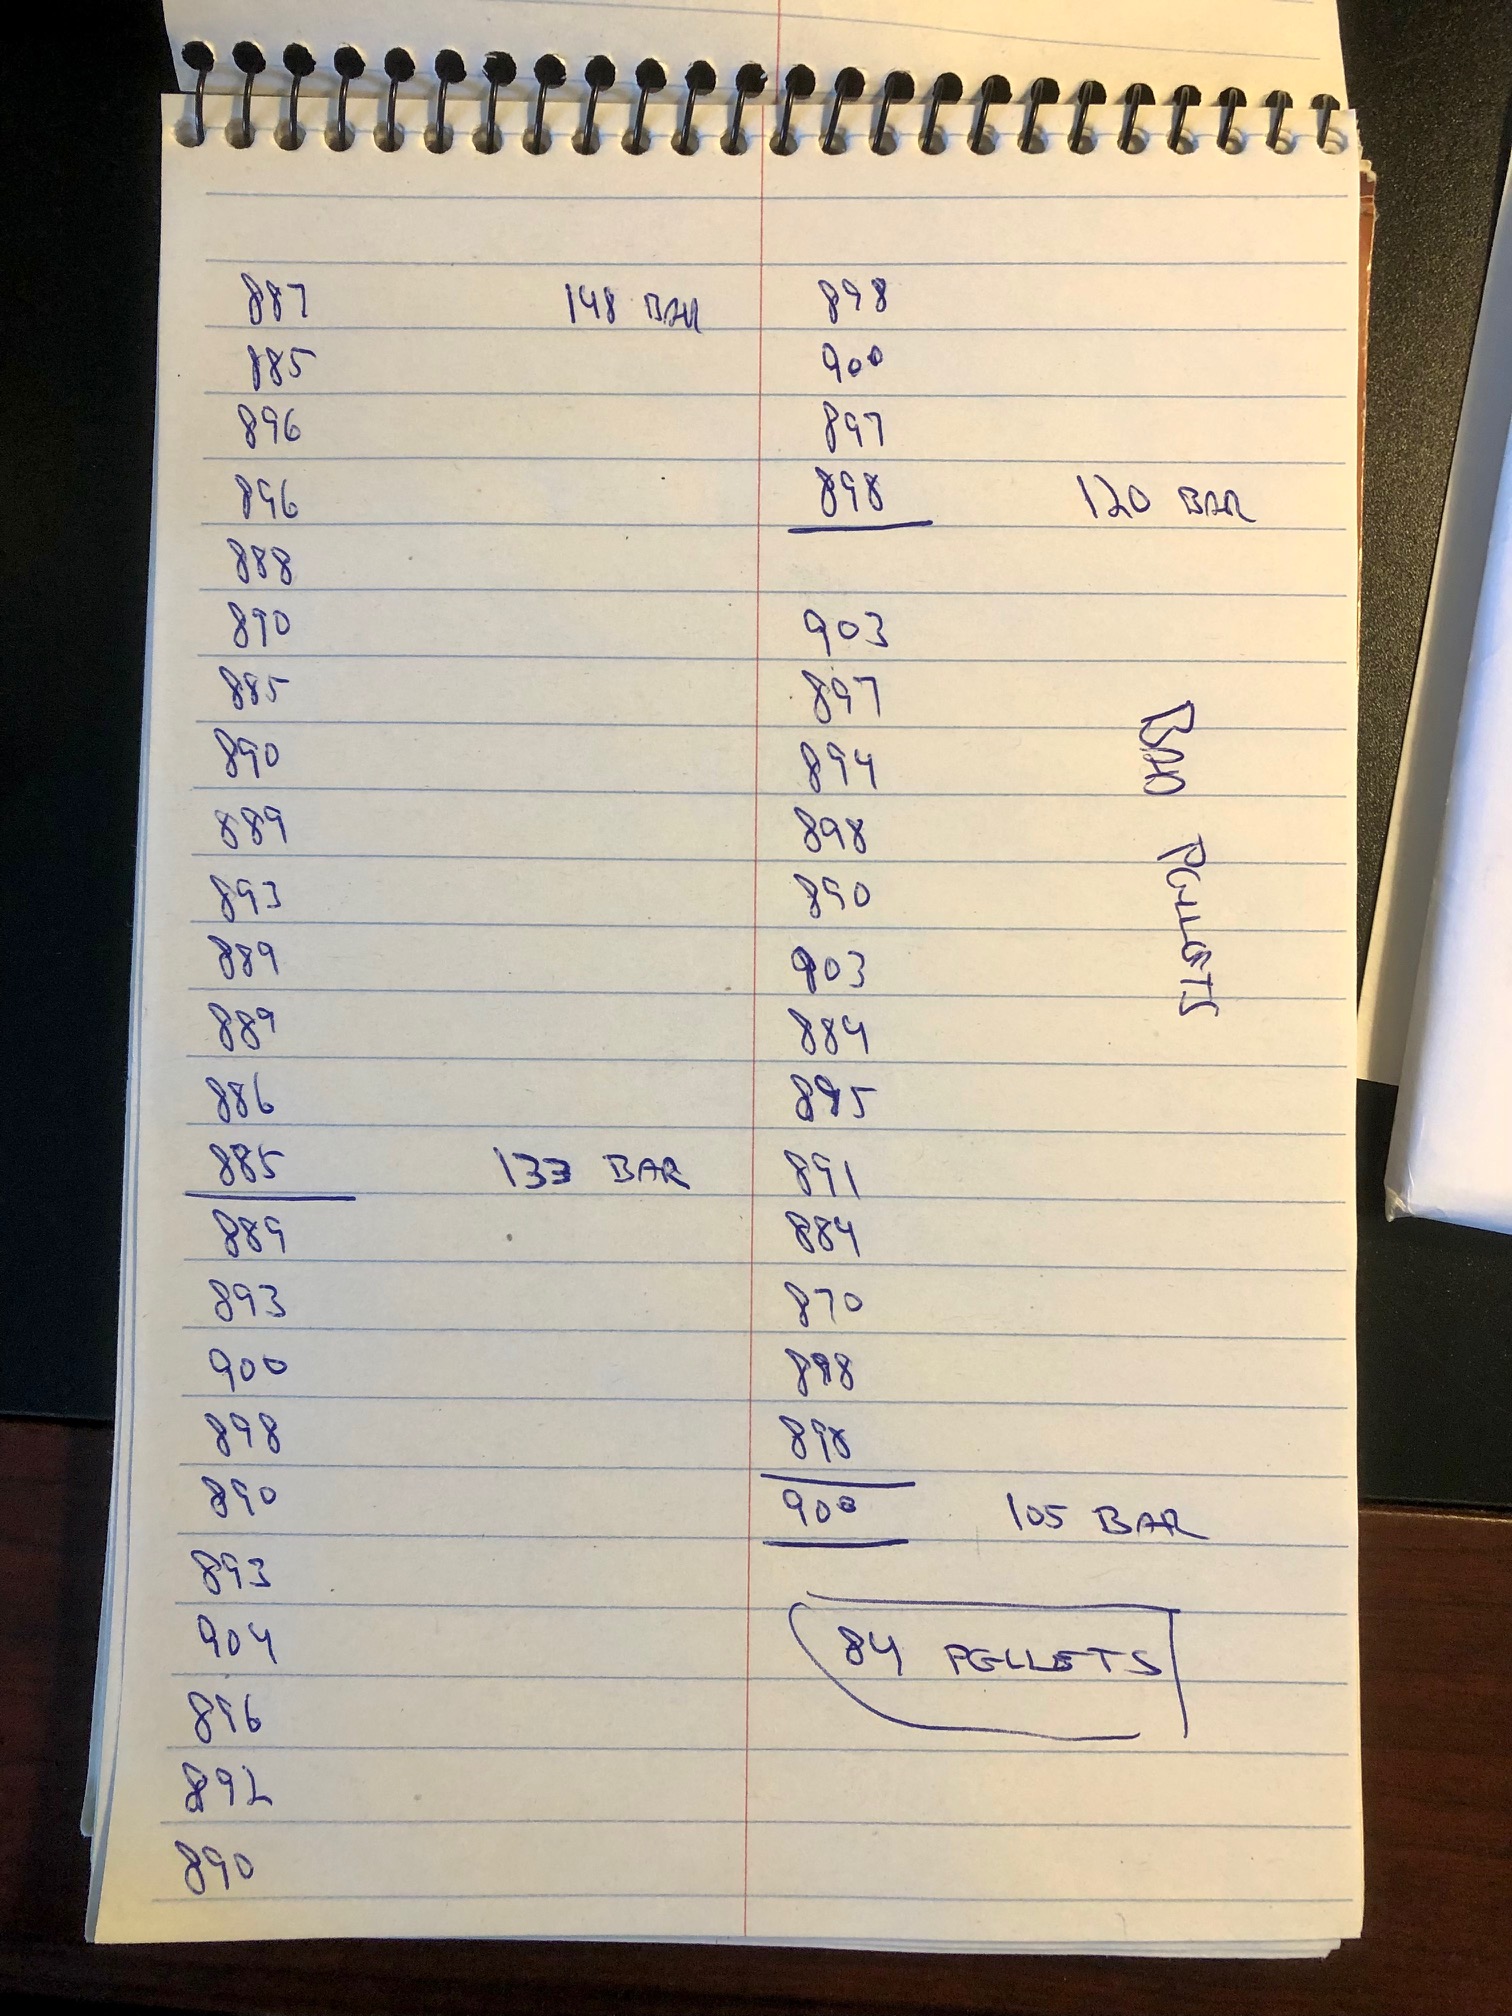 887 148 BAR
885
896
896
888
890
885
890
889
893
889
889
886
885 133 BAR
889
893
900
898
890
893
904
896
892
890
898
900
897
898 120 BAR
903
897
894
898
890
903
884
895
891
884
870
898
898
900 105 BAR
BAD PELLETS
84 PELLETS